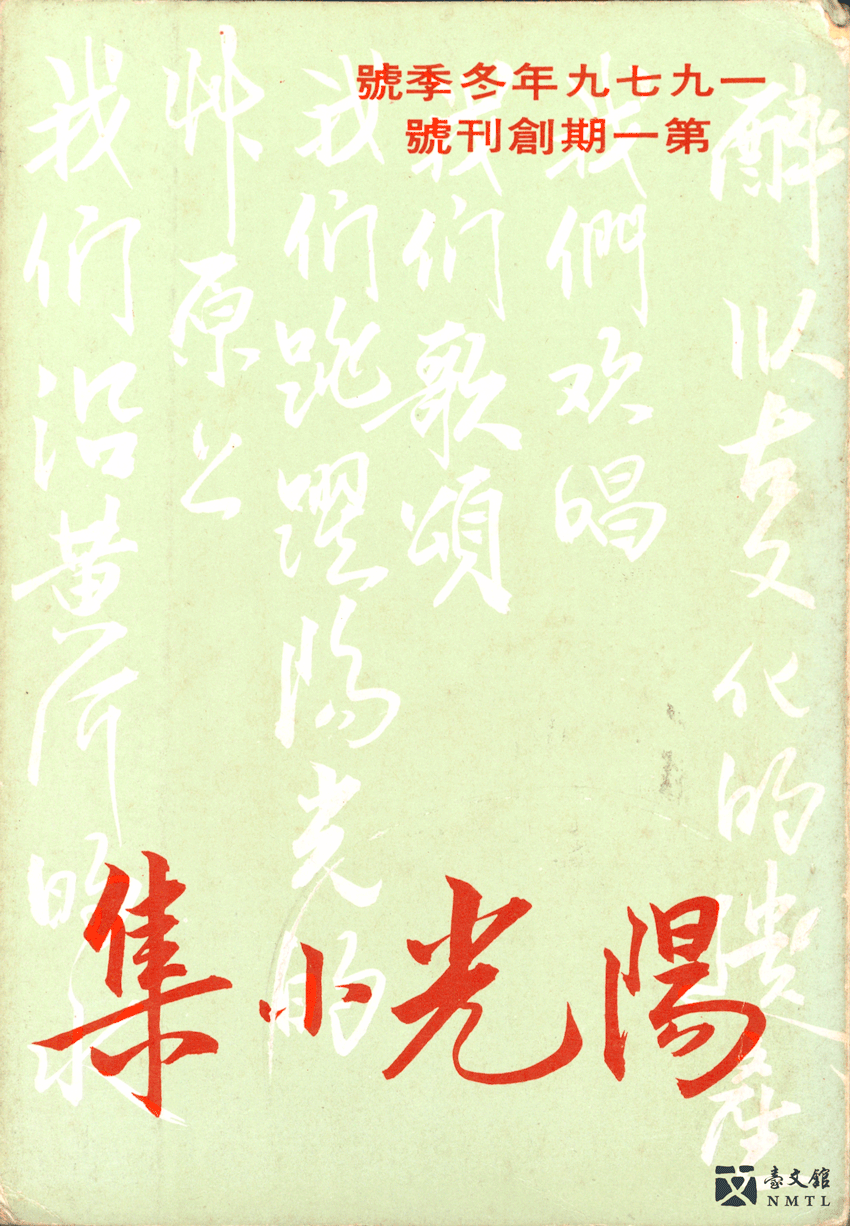 一九七九年冬季號
第一期創刊號
醉以文化的遺產
我們欢唱
我们歌頌
我们跳躍陽光的
艸原上
我们沿黃河的水
陽光小集
臺文館
NMTL